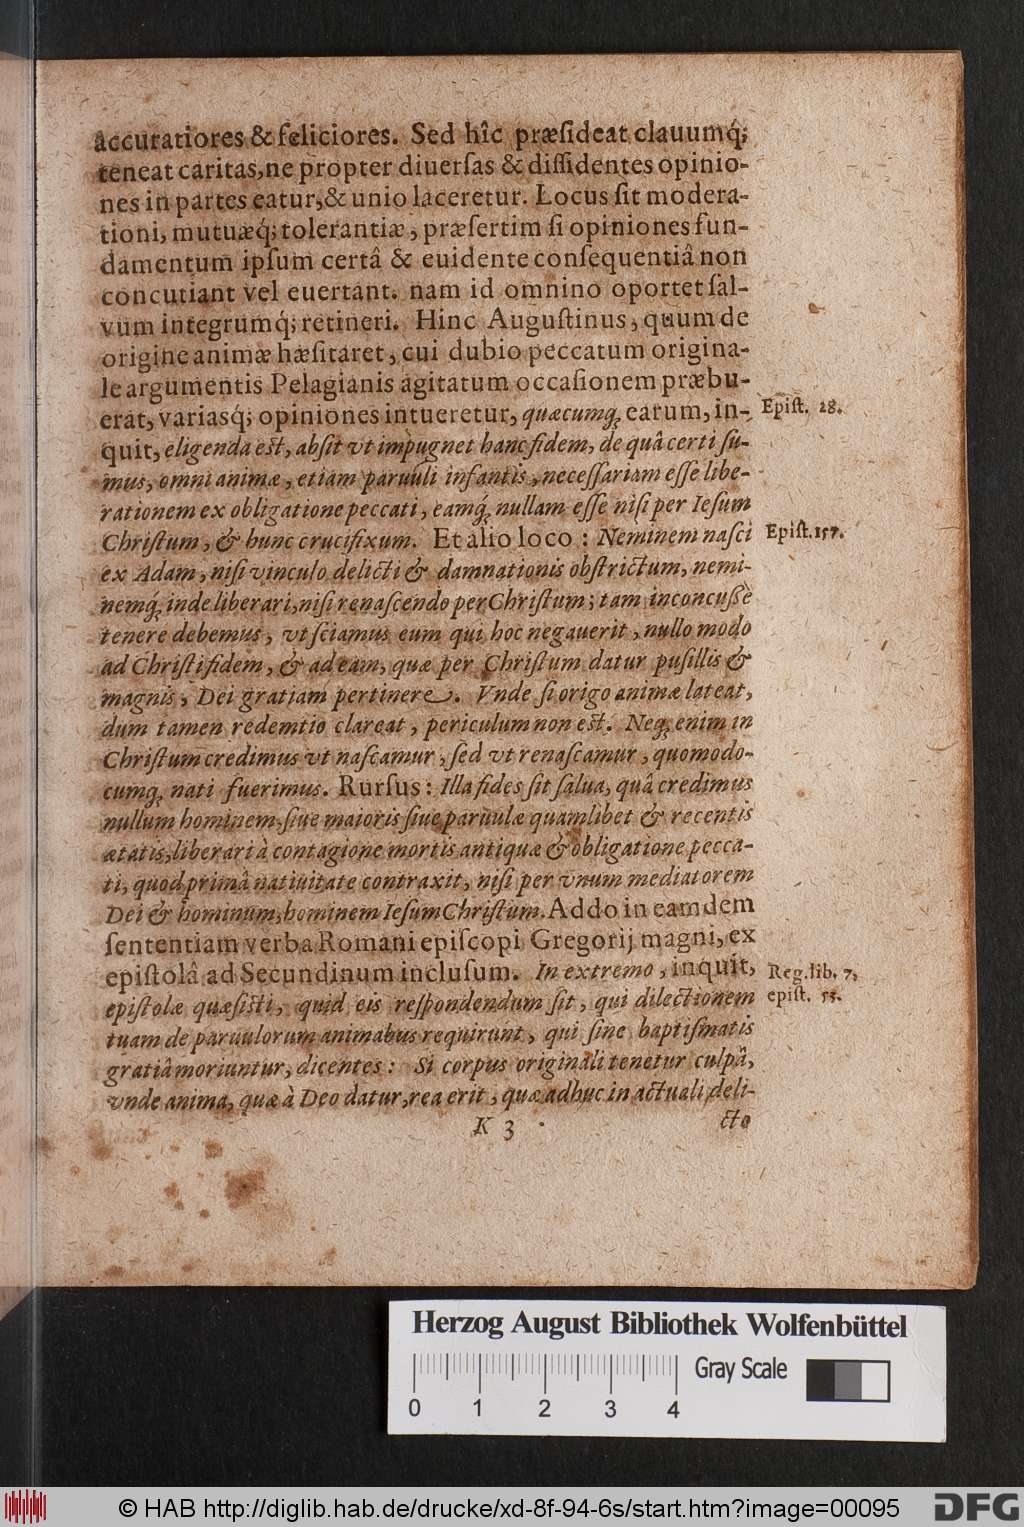 accuratiores & feliciores. Sed hîc præſideat clauumq́;
teneat caritas, ne propter diuerſas & diſſidentes opinio-
nes in partes eatur, & unio laceretur. Locus ſit modera-
tioni, mutuæq́; tolerantiæ, præſertim ſi opiniones fun-
damentum ipſum certâ & euidente conſequentiâ non
concutiant vel euertant. nam id omnino oportet ſal-
vum integrumq́; retineri. Hinc Auguſtinus, quum de
origine animæ hæſitaret, cui dubio peccatum origina-
le argumentis Pelagianis agitatum occaſionem præbu-
erat, variasq́; opiniones intueretur, quæcumq́; earum, in-
Epiſt. 28.
quit, eligenda est, abſit vt impugnet hanc fidem, de quâ certi ſu-
mus, omni animæ, etiam paruuli infantis, neceſſariam eſſe libe-
rationem ex obligatione peccati, eamq́; nullam eſſe niſi per Ieſum
Chriſtum, & hunc crucifixum. Et alio loco: Neminem naſci
Epiſt. 157.
ex Adam, niſi vinculo delicti & damnationis obſtrictum, nemi-
nemq́; inde liberari, niſi renaſcendo per Chriſtum; tam inconcuſſè
tenere debemus, vt ſciamus eum qui hoc negauerit, nullo modo
ad Chriſti fidem, & ad eam, quæ per Chriſtum datur puſillis &
magnis, Dei gratiam pertinere. Vnde ſi origo animæ lateat,
dum tamen redemtio clareat, periculum non est. Neq; enim in
Chriſtum credimus vt naſcamur, ſed vt renaſcamur, quomodo-
cumq; nati fuerimus. Rurſus: Illa fides ſit ſalua, quâ credimus
nullum hominem, ſiue maioris ſiue paruulæ quamlibet & recentis
ætatis, liberari à contagione mortis antiquæ & obligatione pecca-
ti, quod primâ natiuitate contraxit, niſi per vnum mediatorem
Dei & hominum, hominem Ieſum Chriſtum. Addo in eamdem
ſententiam verba Romani epiſcopi Gregorij magni, ex
epiſtolâ ad Secundinum incluſum. In extremo, inquit,
Reg. lib. 7.
epiſtolæ quæſiſti, quid eis reſpondendum ſit, qui dilectionem
epiſt. 53.
tuam de paruulorum animabus requirunt, qui ſine baptiſmatis
gratiâ moriuntur, dicentes: Si corpus originali tenetur culpâ,
vnde anima, quæ à Deo datur, rea erit, quæ adhuc in actuali deli-
K 3
cto
Herzog August Bibliothek Wolfenbüttel
Gray Scale
0 1 2 3 4
© HAB http://diglib.hab.de/drucke/xd-8f-94-6s/start.htm?image=00095
DFG